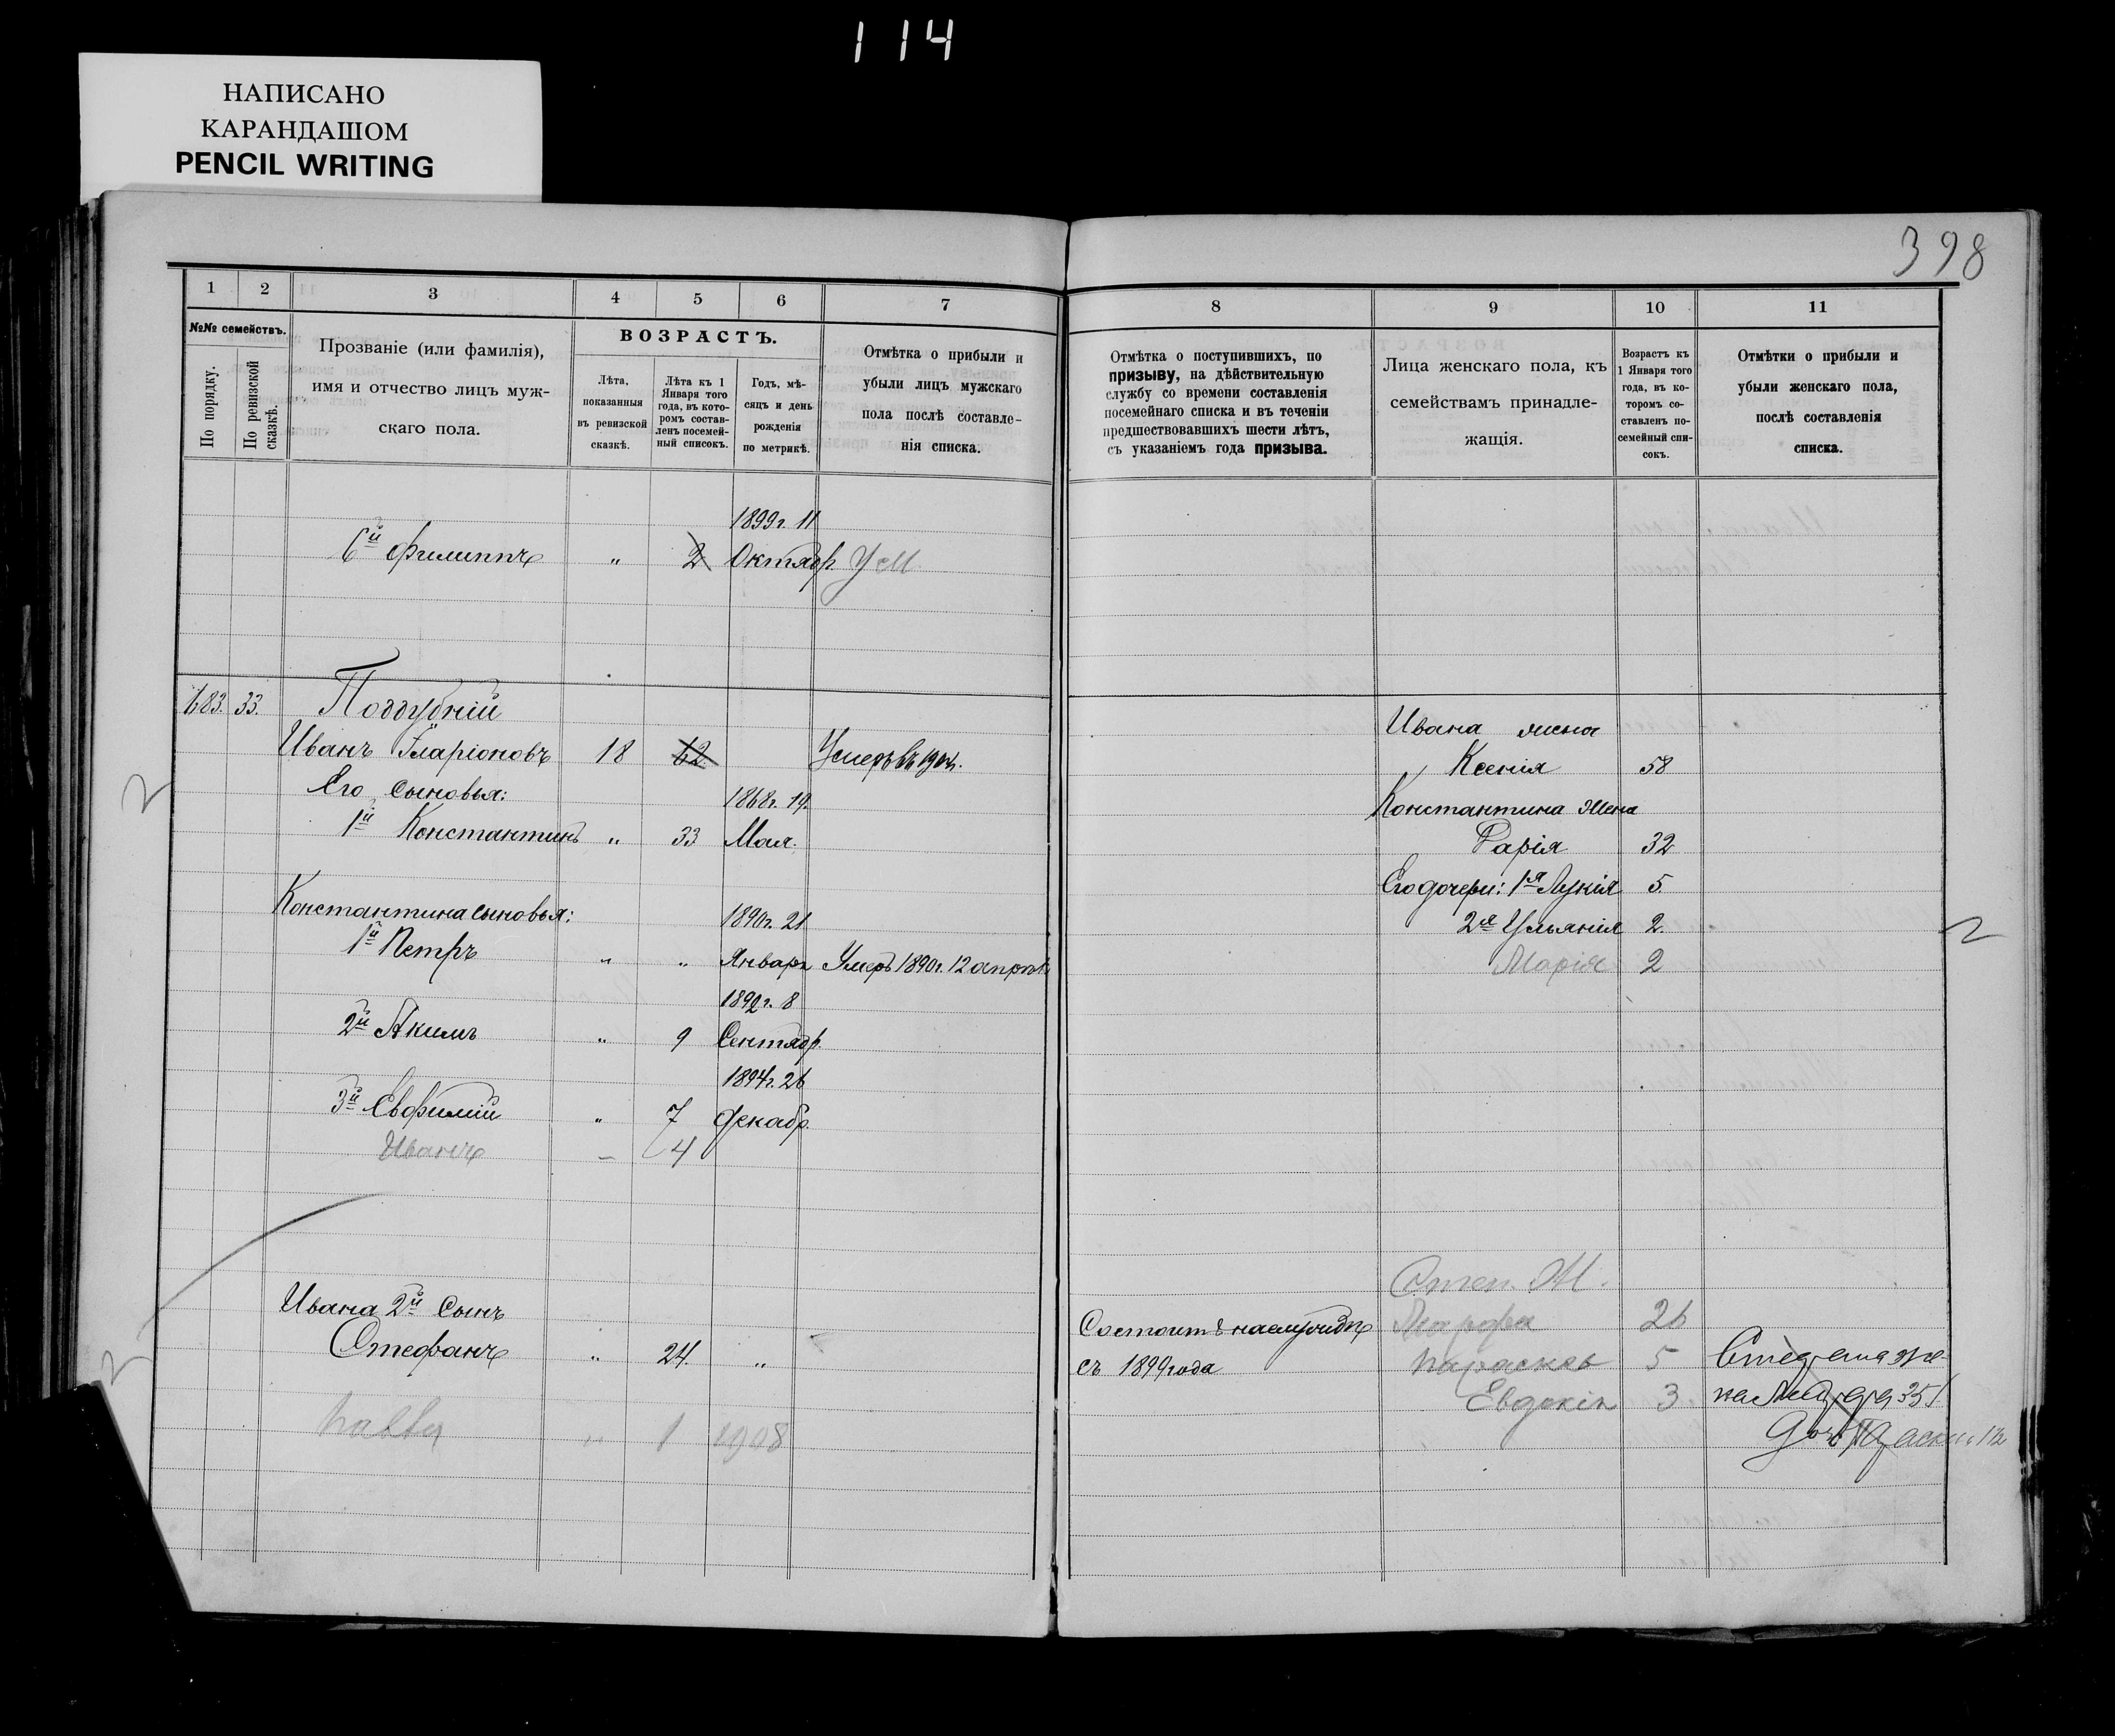 114
НАПИСАНО
КАРАНДАШОМ
PENCIL WRITING
398
1 2 3 4 5 6 7
№№ семействъ.
По порядку.
По ревизской сказкѣ.
Прозваніе (или фамилія),
имя и отчество лицъ муж-
скаго пола.
ВОЗРАСТЪ.
Лѣта,
показанныя
въ ревизской
сказкѣ.
Лѣта къ 1
Января того
года, въ кото-
ромъ состав-
ленъ посемей-
ный списокъ.
Годъ, мѣ-
сяцъ и день
рожденія
по метрикѣ.
Отмѣтка о прибыли и
убыли лицъ мужскаго
пола послѣ составле-
нія списка.
1899 г. 11
6й Филиппъ " 2 Октябр. Ум
683. 33. Поддубній
Иванъ Иларіоновъ 18 62 Умеръ въ
Его сыновья: 1868 г. 19.
1й Константинъ " 33 Мая.
Константина сыновья: 1890 г. 21
1й Петръ " " Января Умеръ 1890 г. 12 апрѣля
1892 г. 8
2й Акимъ " 9 Сентябр.
1894 г. 26
3й Евфимій " 7 Декабр.
Иванъ – 4
Ивана 2й Сынъ
Стефанъ " 24. "
" 1 1908
8 9 10 11
Отмѣтка о поступившихъ, по
призыву, на дѣйствительную
службу со времени составленія
посемейнаго списка и въ теченіи
предшествовавшихъ шести лѣтъ,
съ указаніемъ года призыва.
Лица женскаго пола, къ
семействамъ принадле-
жащія.
Возрастъ къ
1 Января того
года, въ ко-
торомъ со-
ставленъ по-
семейный спи-
сокъ.
Отмѣтки о прибыли и
убыли женскаго пола,
послѣ составленія
списка.
Ивана жена
Ксенія 58
Константина жена
Дарія 32
Его дочери: 1я Лукія 5
2я Ульянія 2
Марія 2
Степ. Ж.
Состоитъ на службѣ Марфа 26
съ 1899 года Параскев 5
Евдокія 3